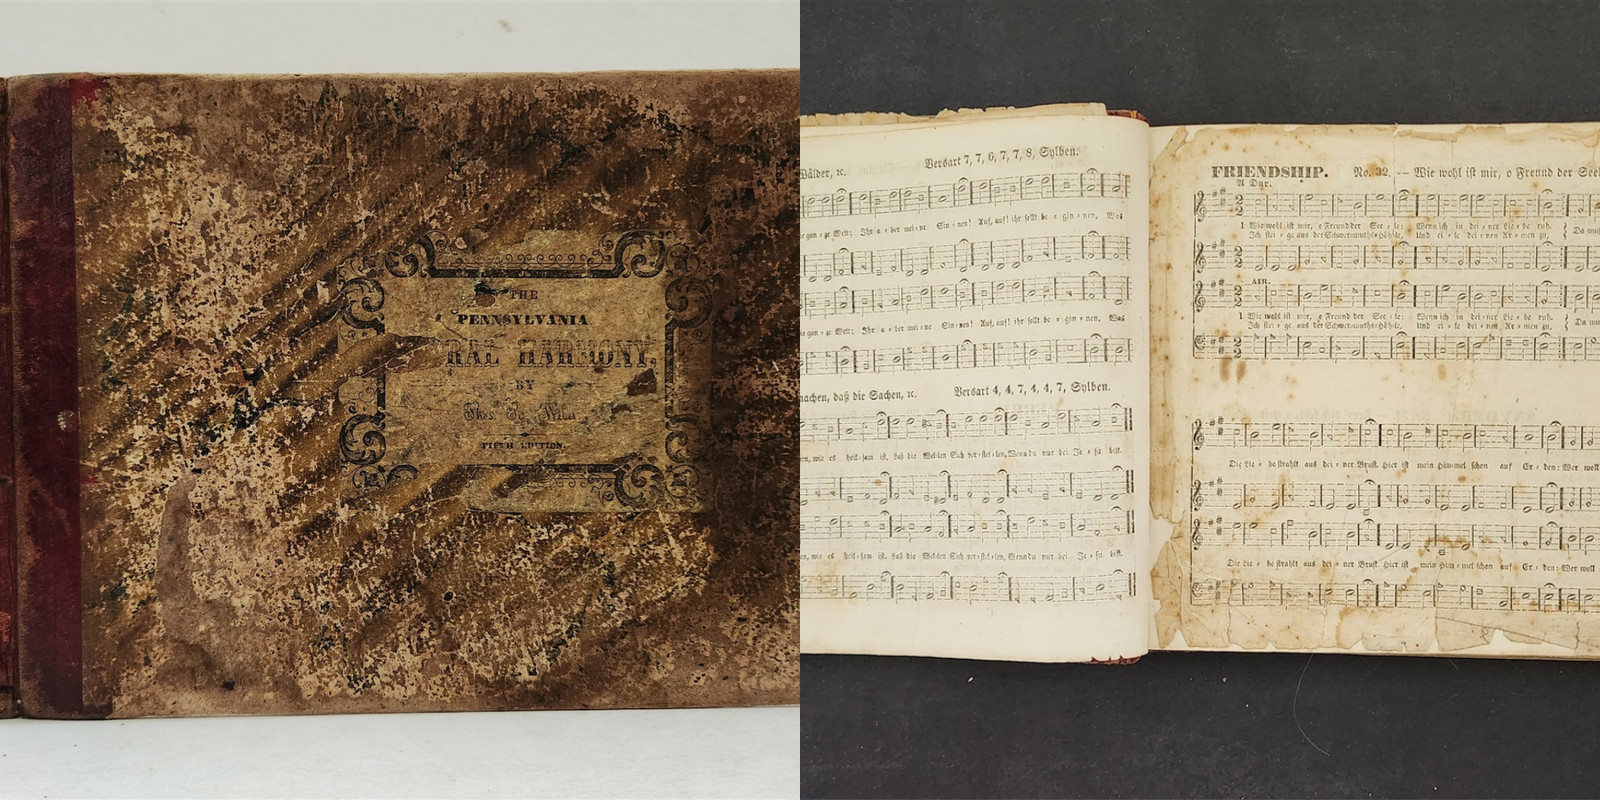 THE
PENNSYLVANIA
RAL HARMONY,
BY
FIFTH EDITION.
Versart 7, 7, 6, 7, 7, 8, Sylben.
Wälder, ꝛc.
ze Welt; Ihr a = ber mei = ne Sin = nen! Auf, auf! ihr sollt be = gin = nen, Was
ze Welt; Ihr a = ber mei = ne Sin = nen! Auf, auf! ihr sollt be = gin = nen, Was
machen, daß die Sachen, ꝛc. Versart 4, 4, 7, 4, 4, 7, Sylben.
en, wie es heil = sam ist. Laß die Wel = len Sich ver = stel = len, Wenn du nur bei Je = su bist.
en, wie es heil = sam ist. Laß die Wel = len Sich ver = stel = len, Wenn du nur bei Je = su bist.
FRIENDSHIP. No. 32, -- Wie wohl ist mir, o Freund der Seel
A Dur.
1 Wie wohl ist mir, o Freund der See = le; Wenn ich in dei = ner Lie = be ruh.
Ich stei = ge aus der Schwermuths = Höhle, Und ei = le dei = nen Ar = men zu, Da muß
AIR.
1 Wie wohl ist mir, o Freund der See = le; Wenn ich in dei = ner Lie = be ruh.
Ich stei = ge aus der Schwermuths = Höhle, Und ei = le dei = nen Ar = men zu, Da muß
Die Lie = be strahlt aus dei = ner Brust. Hier ist mein Him = mel schon auf Er = den: Wer woll
Die Lie = be strahlt aus dei = ner Brust. Hier ist mein Him = mel schon auf Er = den: Wer woll